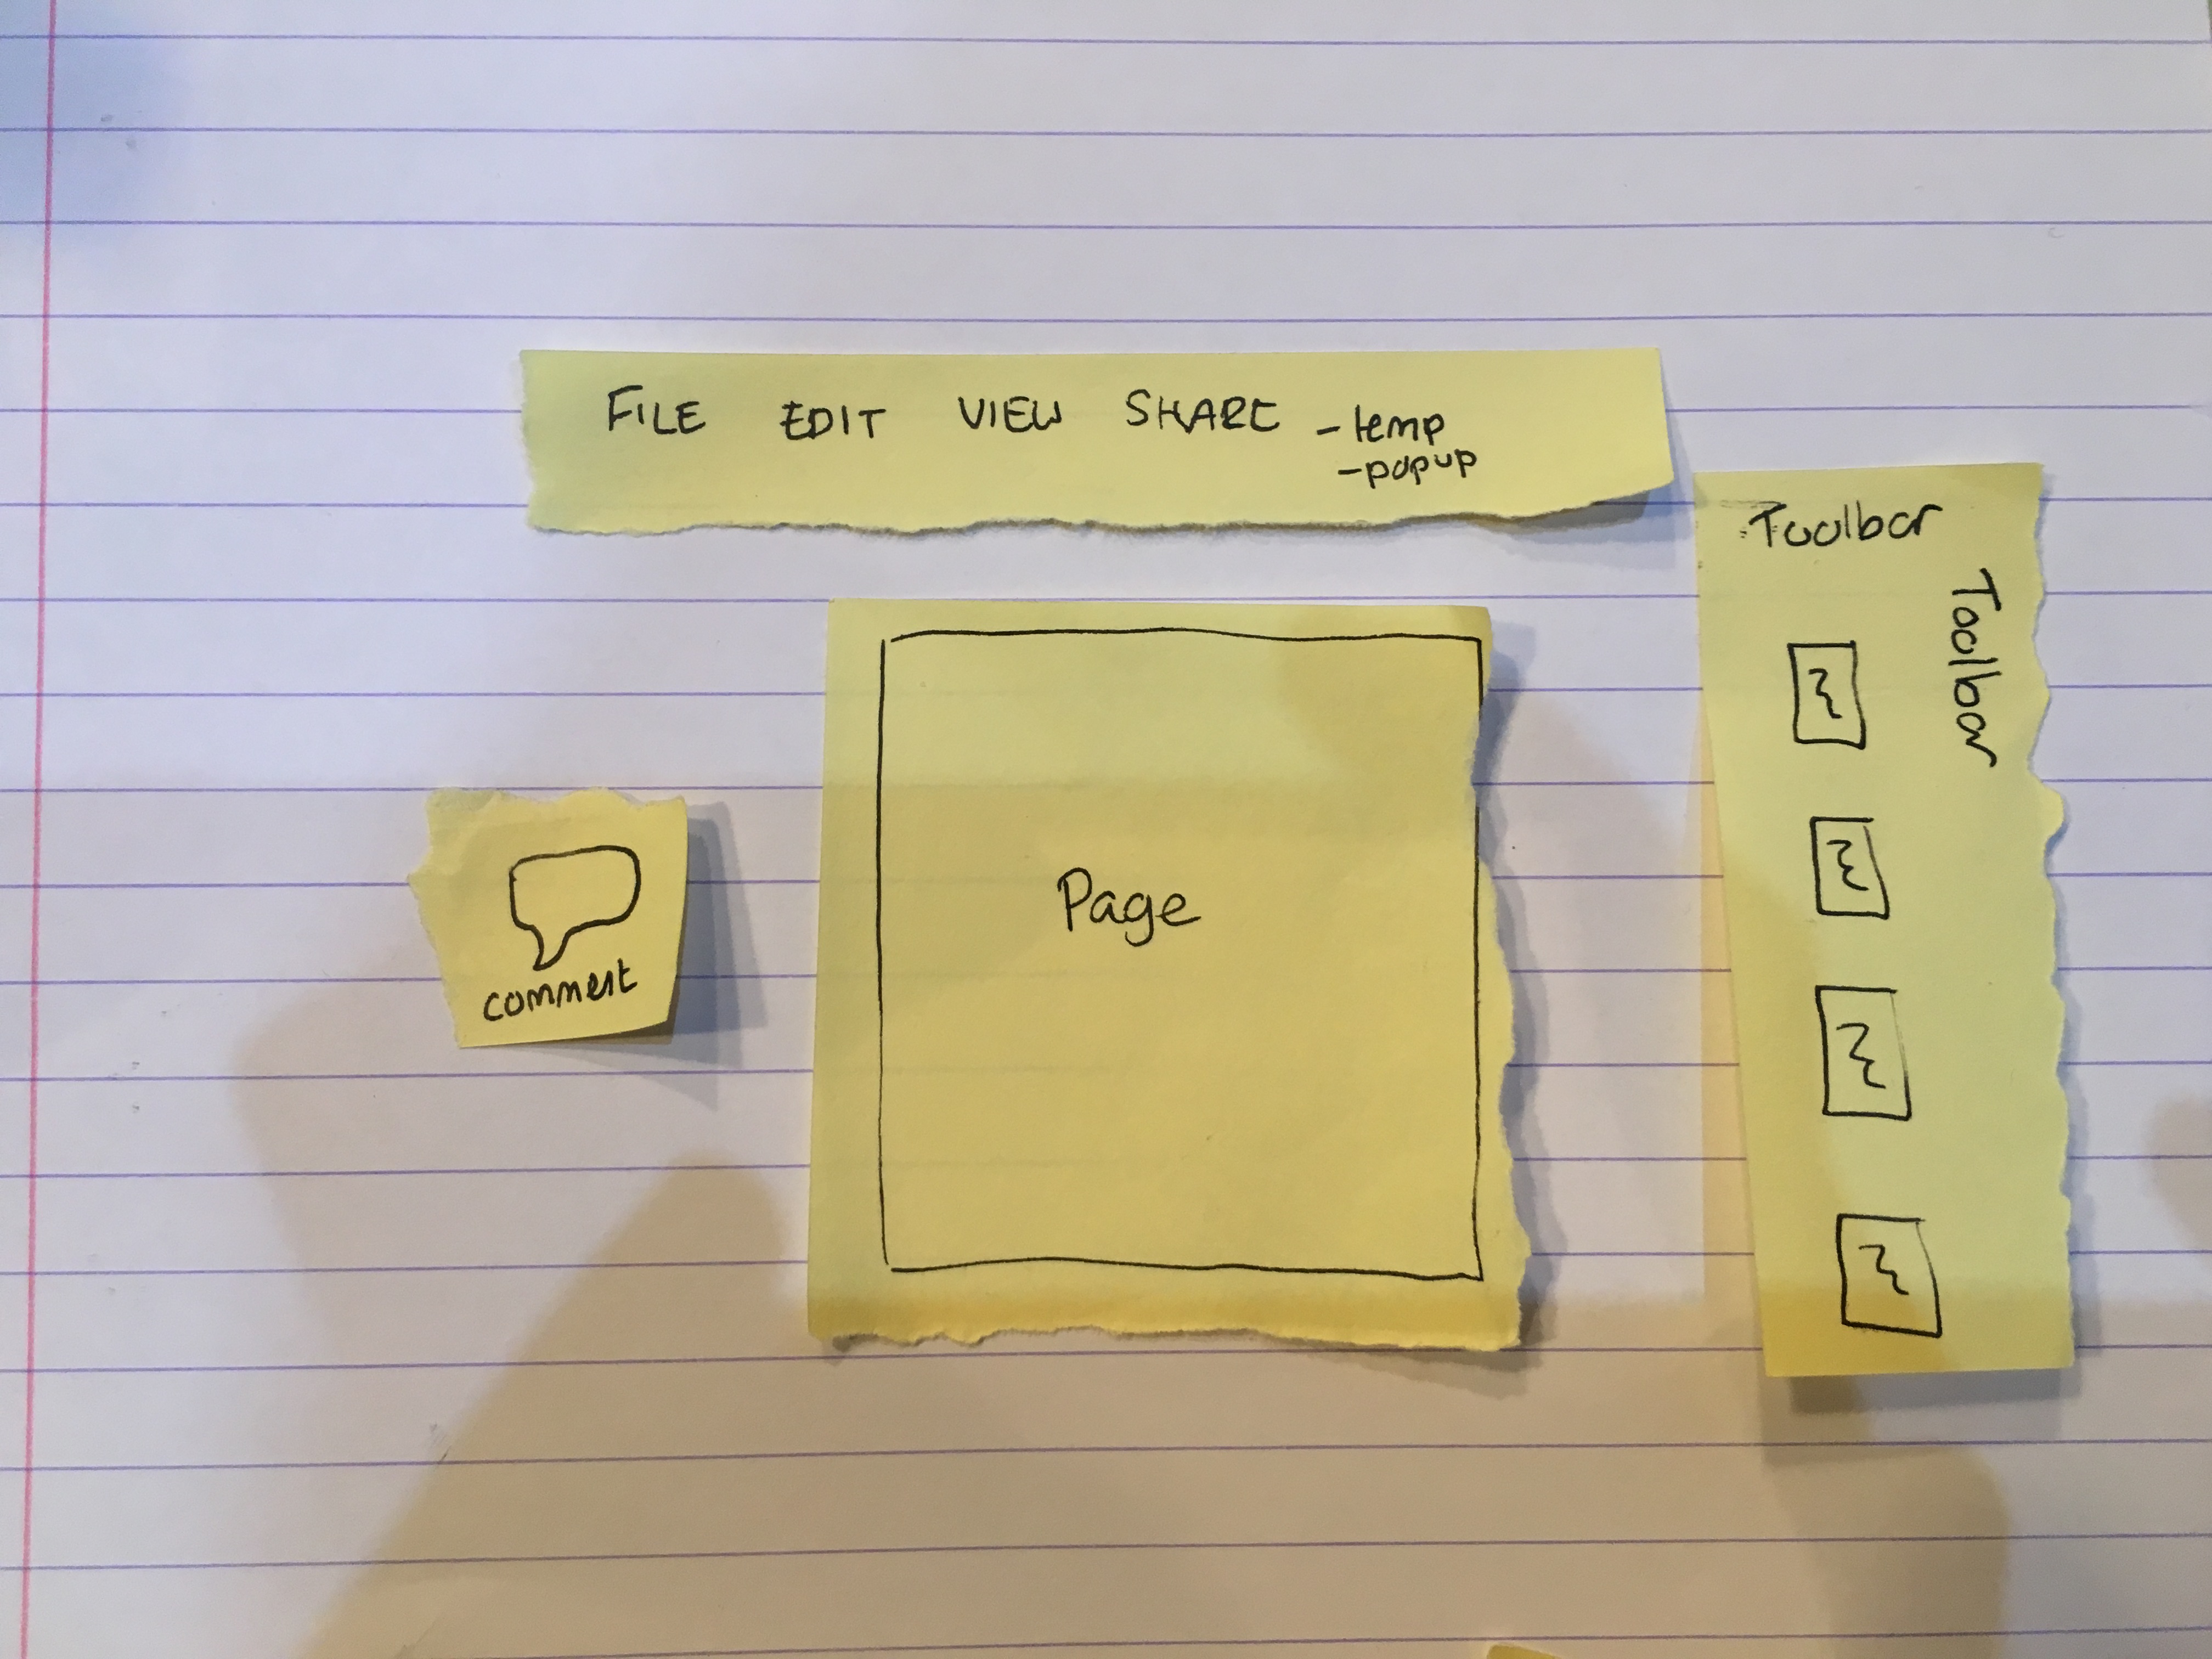 FILE EDIT VIEW SHARE - temp
- popup
comment
Page
Toolbar
Toolbar